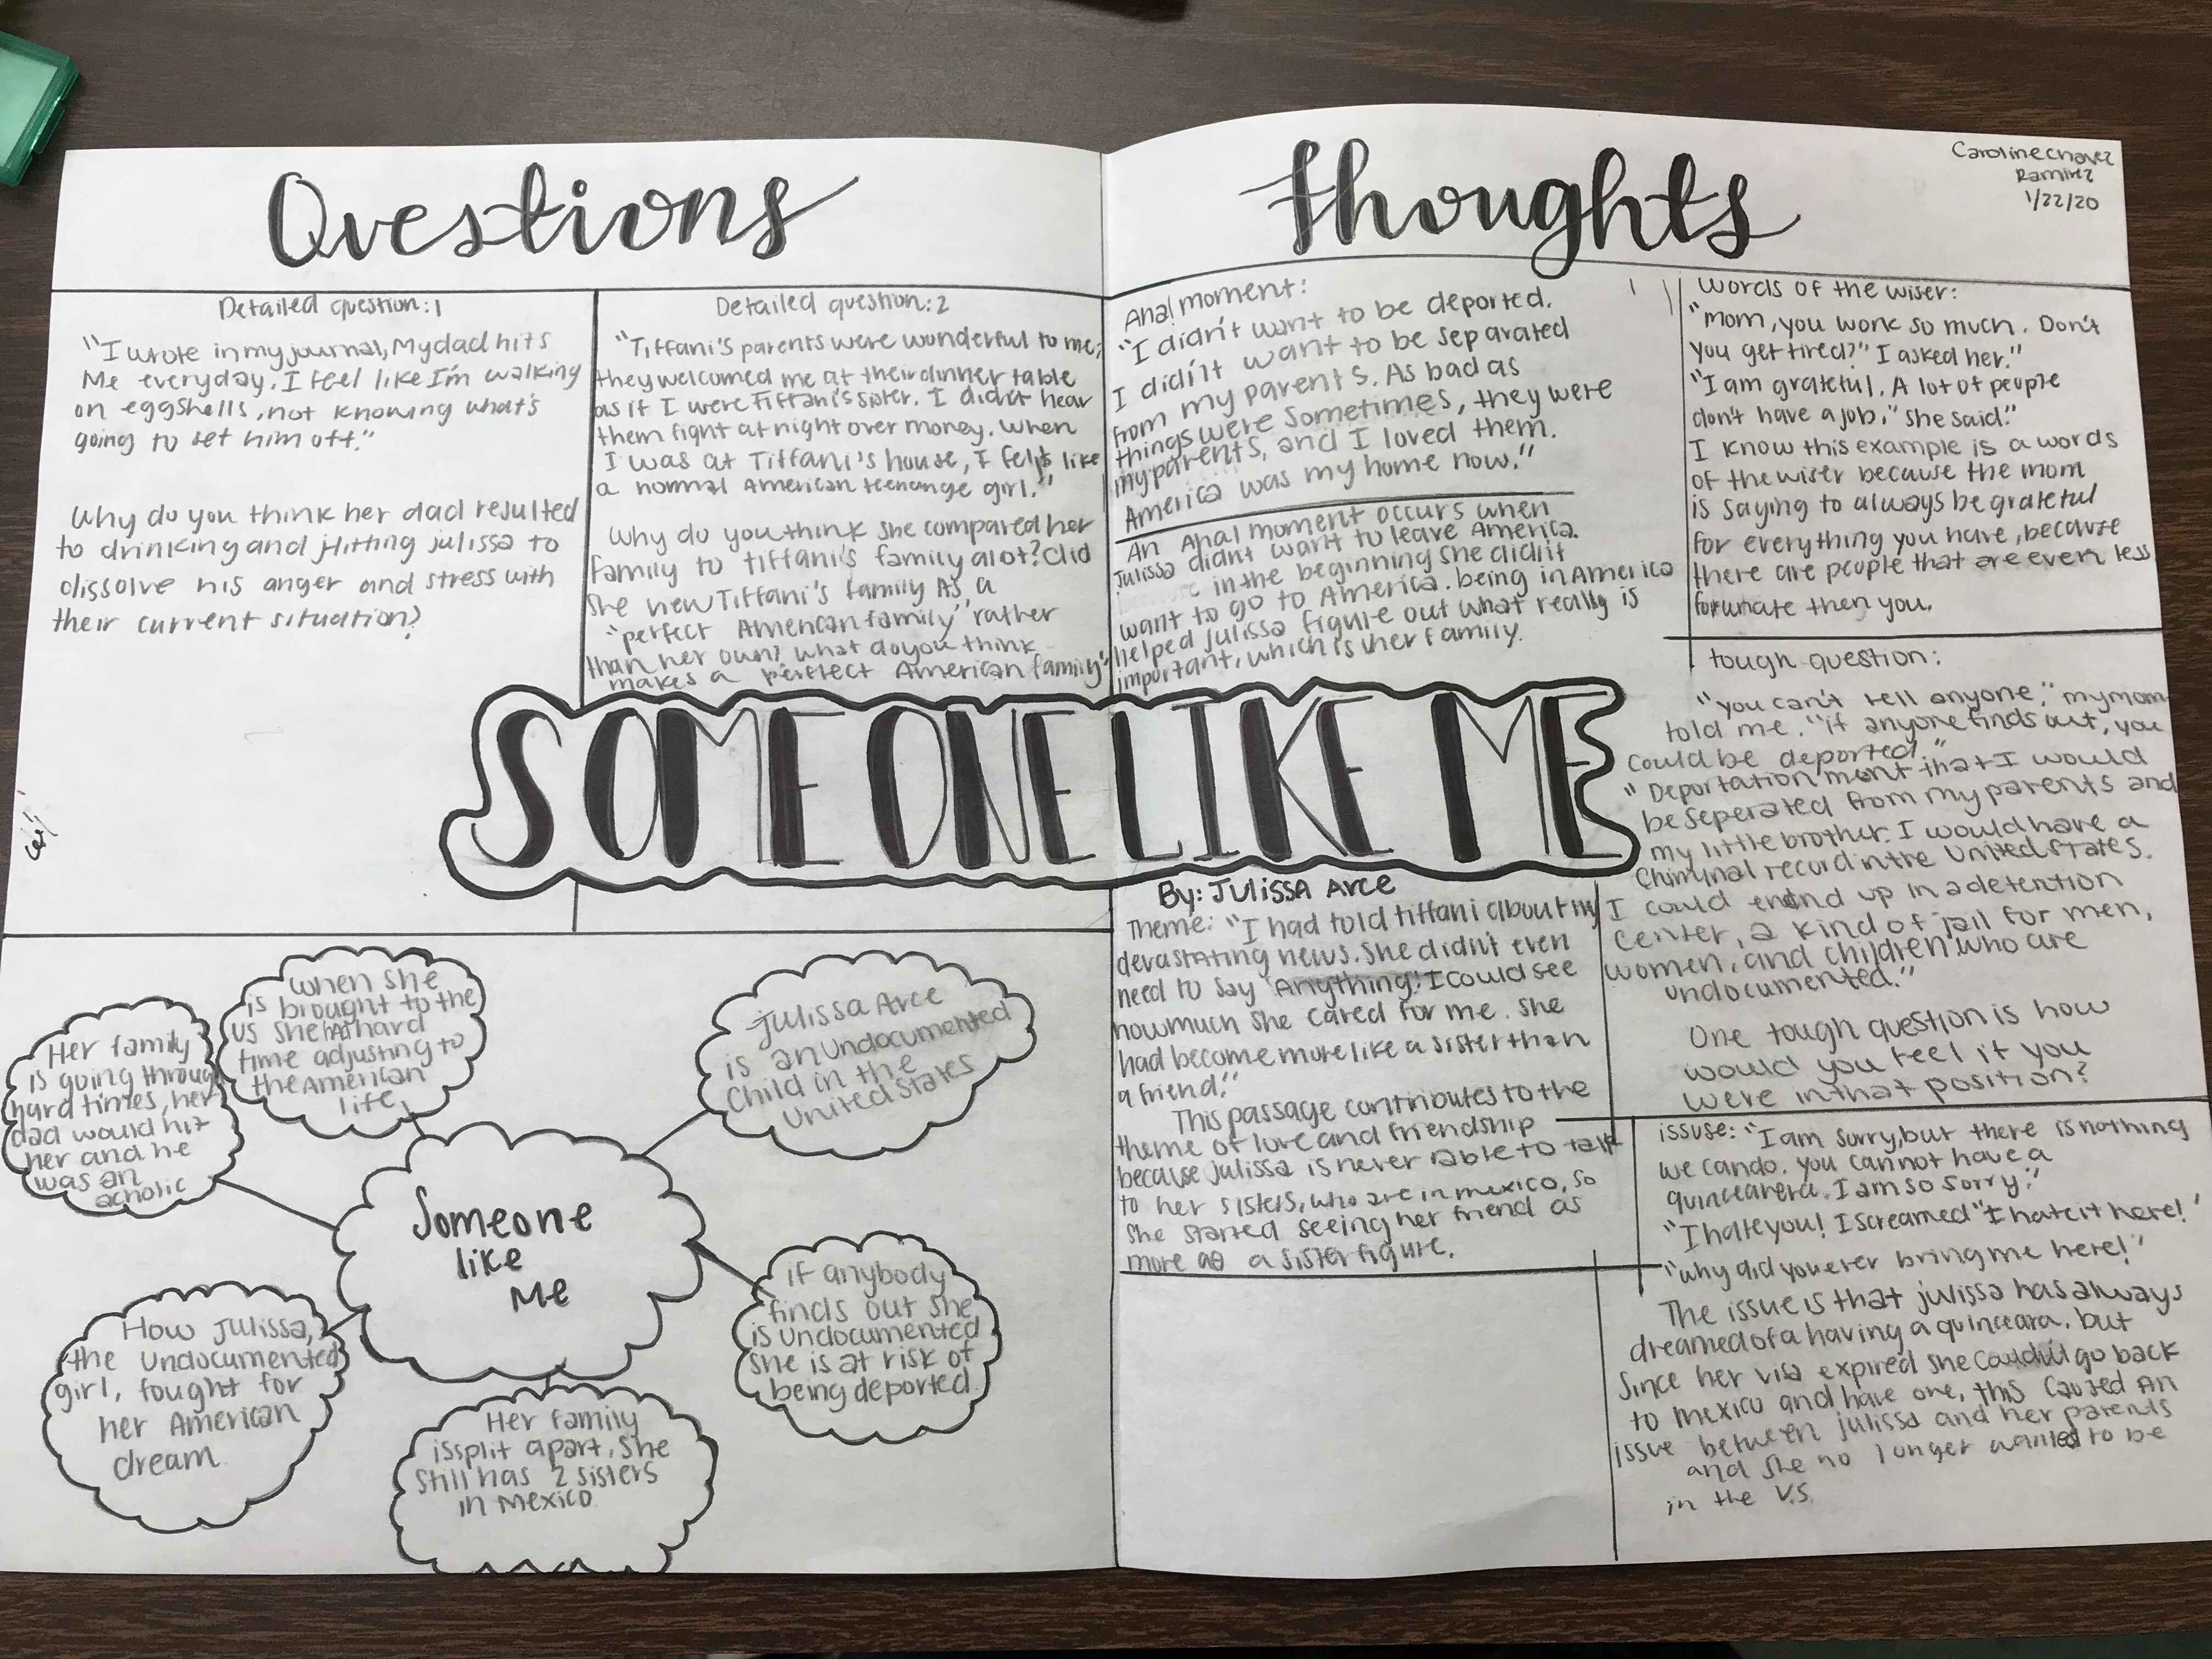 Questions
Thoughts
Caroline Chavez
Ramirez
1/22/20
Detailed question:1
"I wrote in my journal, My dad hits
Me everyday. I feel like I'm walking
on eggshells, not knowing what's
going to set him off."
Why do you think her dad resulted
to drinking and hitting julissa to
dissolve his anger and stress with
their current situation?
Detailed question:2
"Tiffani's parents were wonderful to me;
they welcomed me at their dinner table
as if I were Tiffani's sister. I didn't hear
them fight at night over money. When
I was at Tiffani's house, I felt like
a normal American teenange girl."
Why do you think she compared her
family to tiffani's family alot? Did
she new Tiffani's family As a
"perfect American family" rather
than her own? what do you think
makes a "perfect American family"
Aha! moment:
"I didn't want to be deported.
I didn't want to be separated
from my parents. As bad as
things were sometimes, they were
my parents, and I loved them.
America was my home now."
An Aha! moment occurs when
Julissa didn't want to leave America.
in the beginning she didn't
want to go to America. being in America
helped julissa figure out what really is
important, which is her family.
words of the wiser:
"mom, you work so much. Don't
you get tired?" I asked her."
"I am grateful. A lot of people
don't have a job," she said."
I know this example is a words
of the wiser because the mom
is saying to always be grateful
for everything you have, because
there are people that are even less
fortunate then you.
tough question:
"you can't tell anyone," my mom
told me. "if anyone finds out, you
could be deported."
"Deportation ment that I would
be seperated from my parents and
my little brother. I would have a
Chiminal record in the United States.
I could end up in a detention
center, a kind of jail for men,
women, and children who are
undocumented."
One tough question is how
would you feel if you
were in that position?
SOMEONE LIKE ME
By: Julissa Arce
Theme: "I had told tiffani about my
devastating news. She didn't even
need to say Anything! I could see
how much she cared for me. She
had become more like a sister than
a friend."
This passage contributes to the
theme of love and friendship
because julissa is never able to talk
to her sisters, who are in mexico, so
she started seeing her friend as
more as a sister figure.
issuse: "I am sorry, but there is nothing
we can do. you cannot have a
quinceanera. I am so sorry."
"I hate you! I screamed "I hate it here!"
"why did you ever bring me here!"
The issue is that julissa has always
dreamed of a having a quinceara, but
since her visa expired she couldn't go back
to mexico and have one, this caused An
issue between julissa and her parents
and she no longer wanted to be
in the U.S.
when she
is brought to the
US she hAd hard
time adjusting to
the American
life,
Her family
is going through
hard times, her
dad would hit
her and he
was an
acholic
Julissa Arce
is an undocumented
child in the
united states
Someone
like
Me
if anybody
finds out she
is undocumented
she is at risk of
being deported
How Julissa,
the undocumented
girl, fought for
her American
dream.
Her family
is split apart, she
still has 2 sisters
in mexico